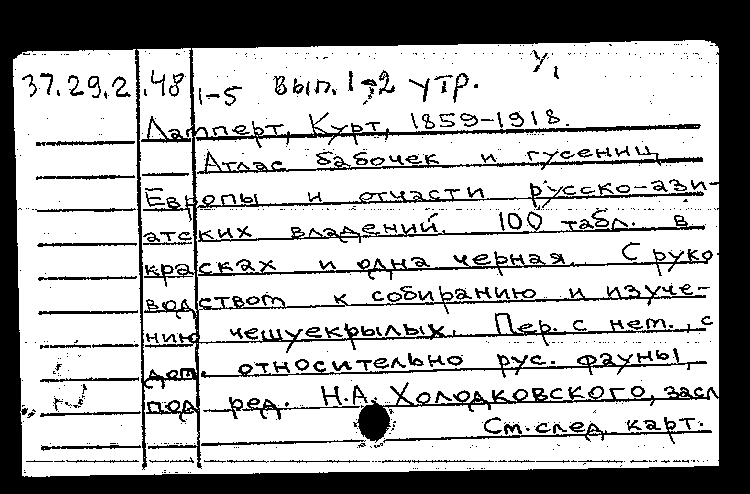 37.29.2.48 1-5 Вып. 1 и 2 утр. У,
Ламперт, Курт, 1859-1918.
Атлас бабочек и гусениц
Европы и отчасти русско-ази-
атских владений. 100 табл. в
красках и одна черная. С руко-
водством к собиранию и изуче-
нию чешуекрылых. Пер. с нем., с
доп. относительно рус. фауны,
под ред. Н.А. Холодковского, засл
См. след. карт.